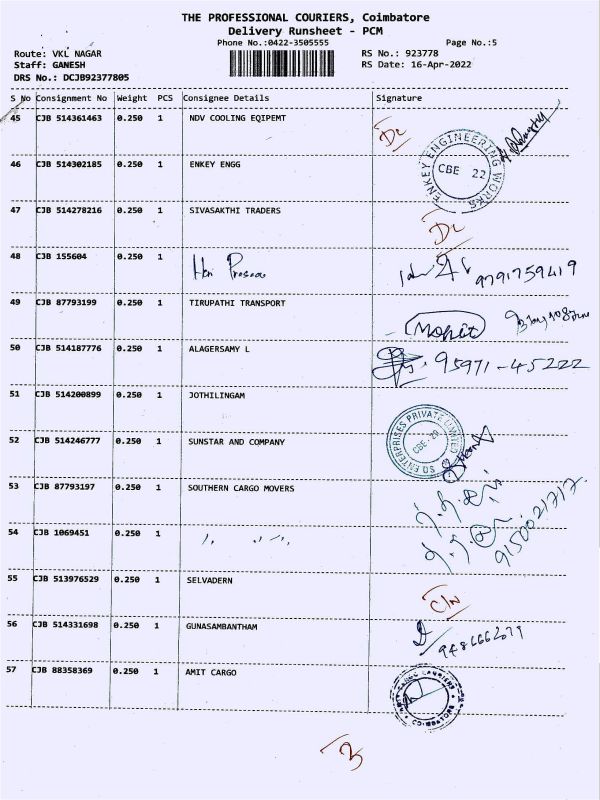 THE PROFESSIONAL COURIERS, Coimbatore
Delivery Runsheet - PCM
Phone No.:0422-3505555 Page No.:5
Route: VKL NAGAR RS No.: 923778
Staff: GANESH RS Date: 16-Apr-2022
DRS No.: DCJB92377805
S No Consignment No Weight PCS Consignee Details Signature
45 CJB 514361463 0.250 1 NDV COOLING EQIPEMT DL
46 CJB 514302185 0.250 1 ENKEY ENGG ENKEY ENGINEERING WORKS CBE 22
47 CJB 514278216 0.250 1 SIVASAKTHI TRADERS DL
48 CJB 155604 0.250 1 Hari 9791759419
49 CJB 87793199 0.250 1 TIRUPATHI TRANSPORT Mohit
50 CJB 514187776 0.250 1 ALAGERSAMY L 95971-45222
51 CJB 514200899 0.250 1 JOTHILINGAM
52 CJB 514246777 0.250 1 SUNSTAR AND COMPANY SQ ENTERPRISES PRIVATE LIMITED CBE-29
53 CJB 87793197 0.250 1 SOUTHERN CARGO MOVERS
54 CJB 1069451 0.250 1 9150021717
55 CJB 513976529 0.250 1 SELVADERN C/N
56 CJB 514331698 0.250 1 GUNASAMBANTHAM
57 CJB 88358369 0.250 1 AMIT CARGO COIMBATORE